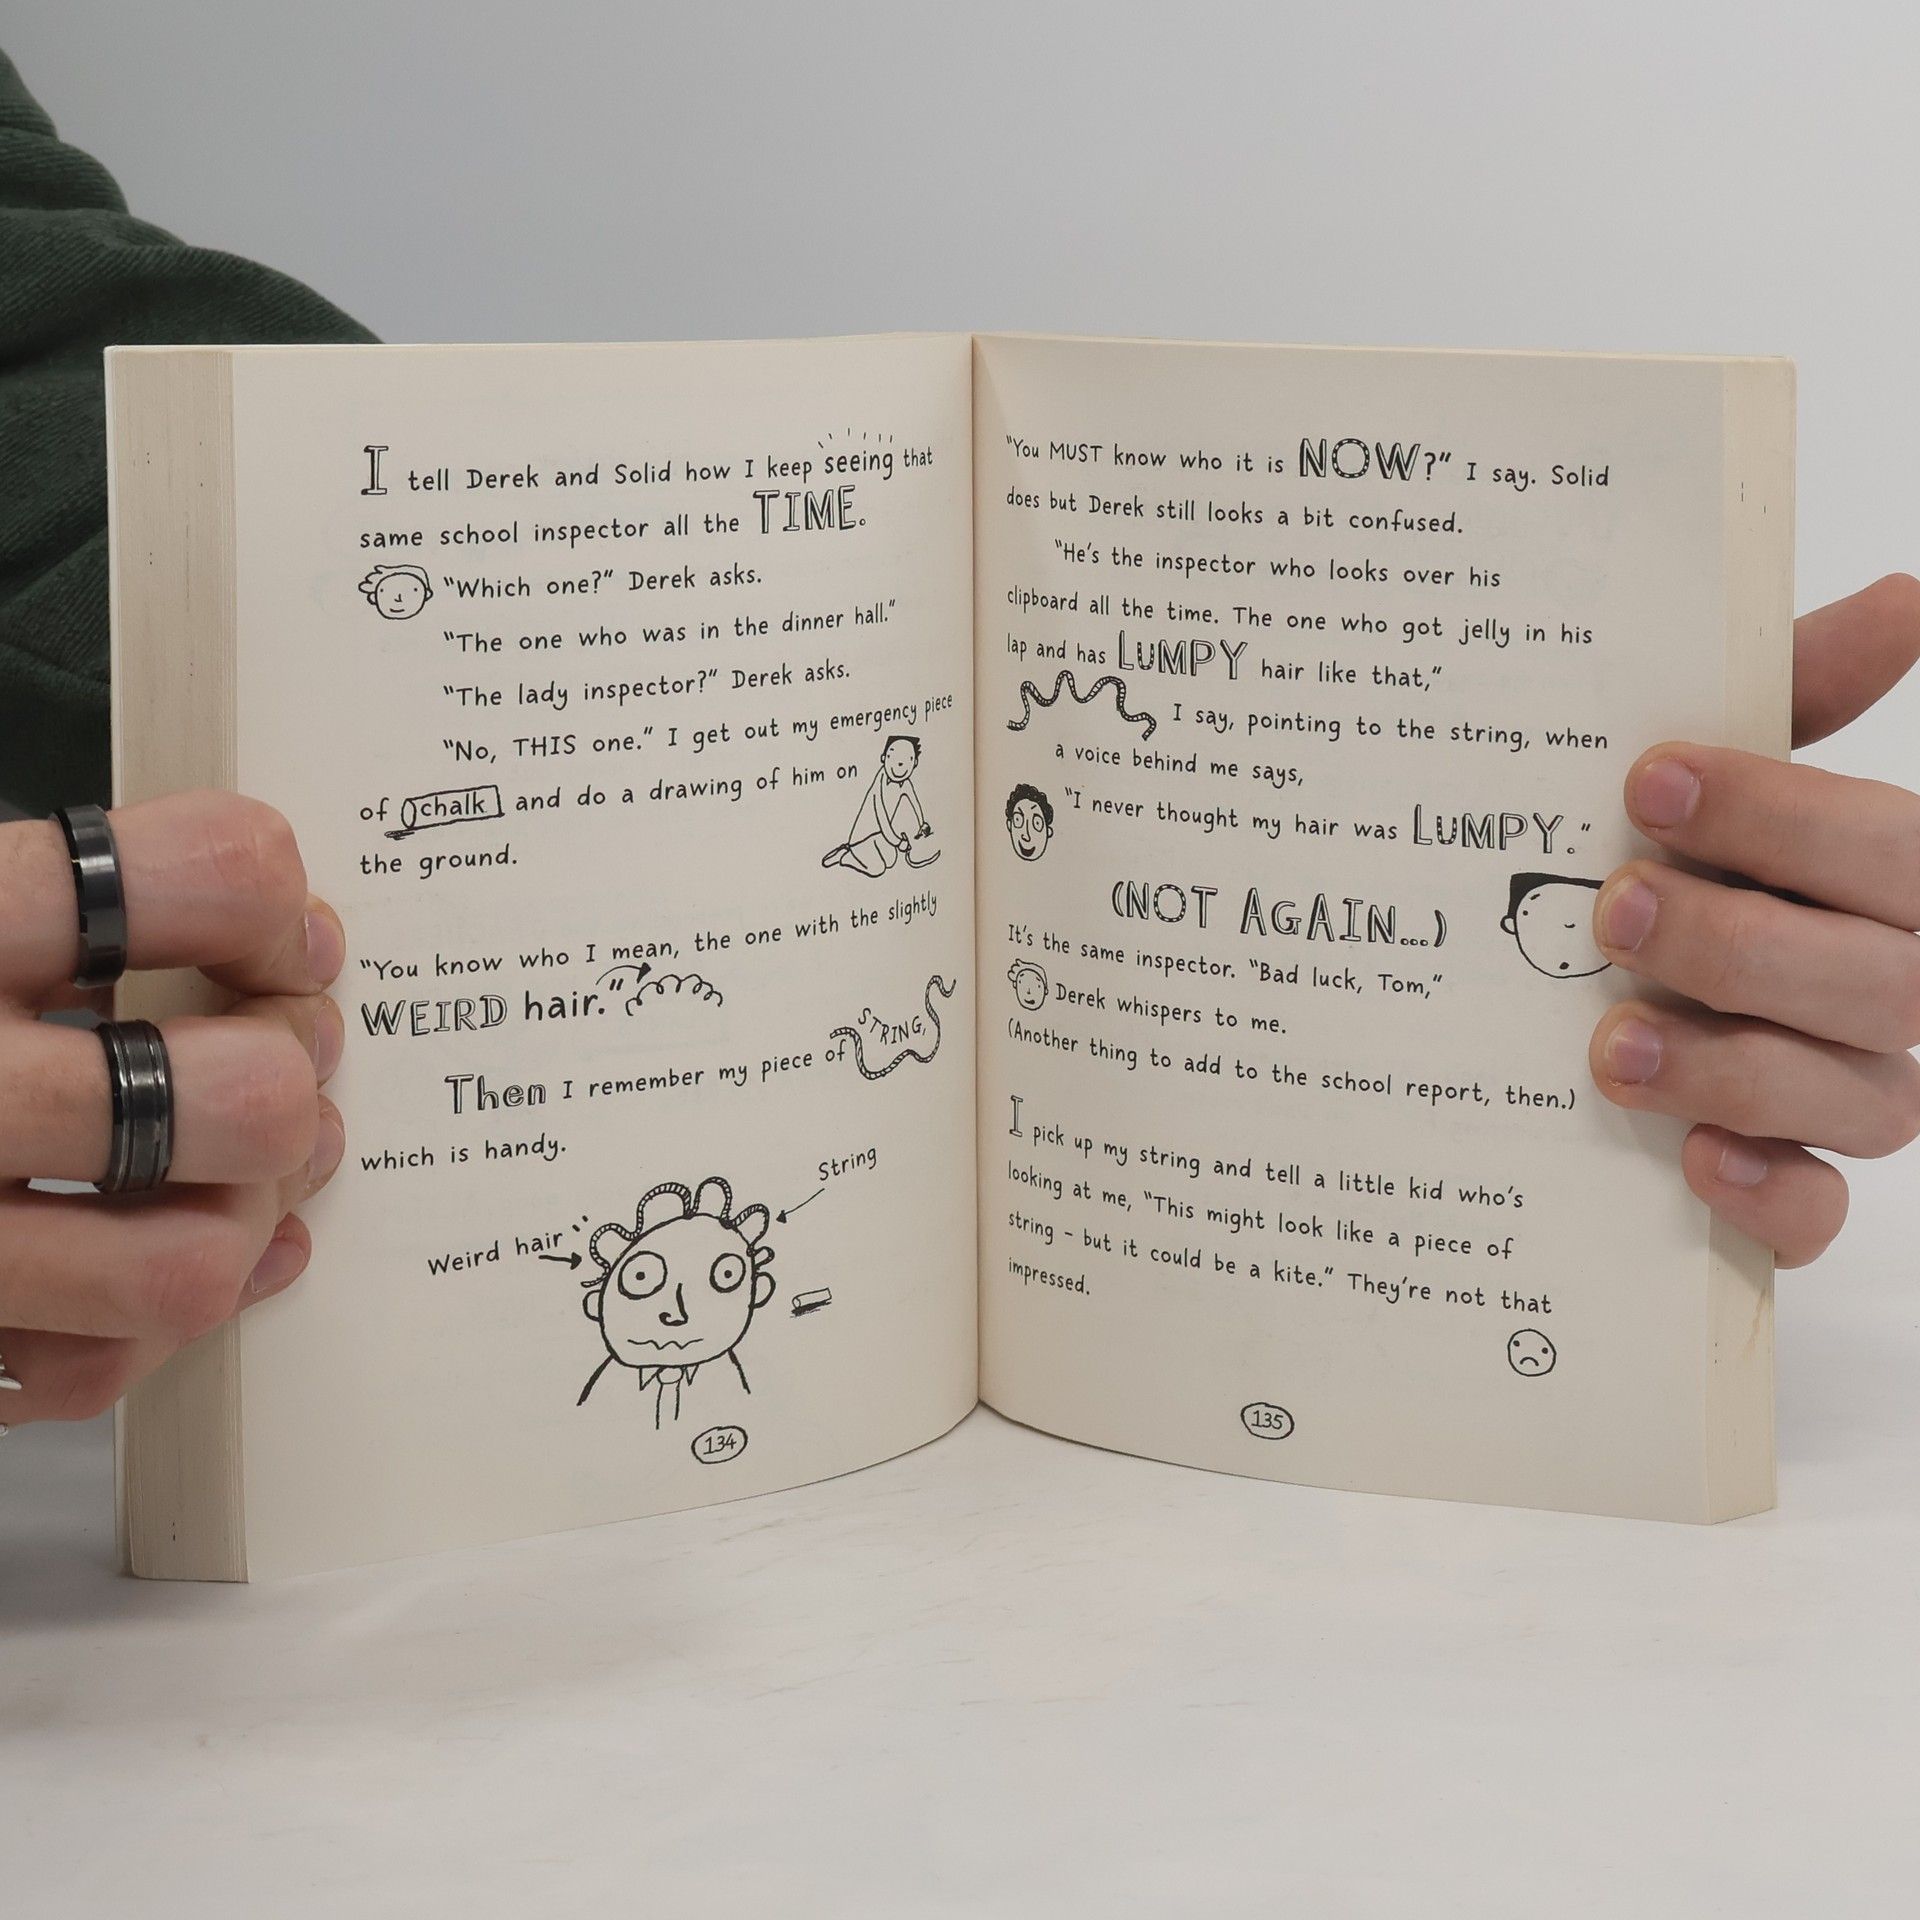 I tell Derek and Solid how I keep seeing that
same school inspector all the TIME.
"Which one?" Derek asks.
"The one who was in the dinner hall."
"The lady inspector?" Derek asks.
"No, THIS one." I get out my emergency piece
of chalk and do a drawing of him on
the ground.
"You know who I mean, the one with the slightly
WEIRD hair."
Then I remember my piece of STRING,
which is handy.
String
Weird hair
134
"You MUST know who it is NOW?" I say. Solid
does but Derek still looks a bit confused.
"He's the inspector who looks over his
clipboard all the time. The one who got jelly in his
lap and has LUMPY hair like that,"
I say, pointing to the string, when
a voice behind me says,
"I never thought my hair was LUMPY."
(NOT AGAIN...)
It's the same inspector. "Bad luck, Tom,"
Derek whispers to me.
(Another thing to add to the school report, then.)
I pick up my string and tell a little kid who's
looking at me, "This might look like a piece of
string - but it could be a kite." They're not that
impressed.
135